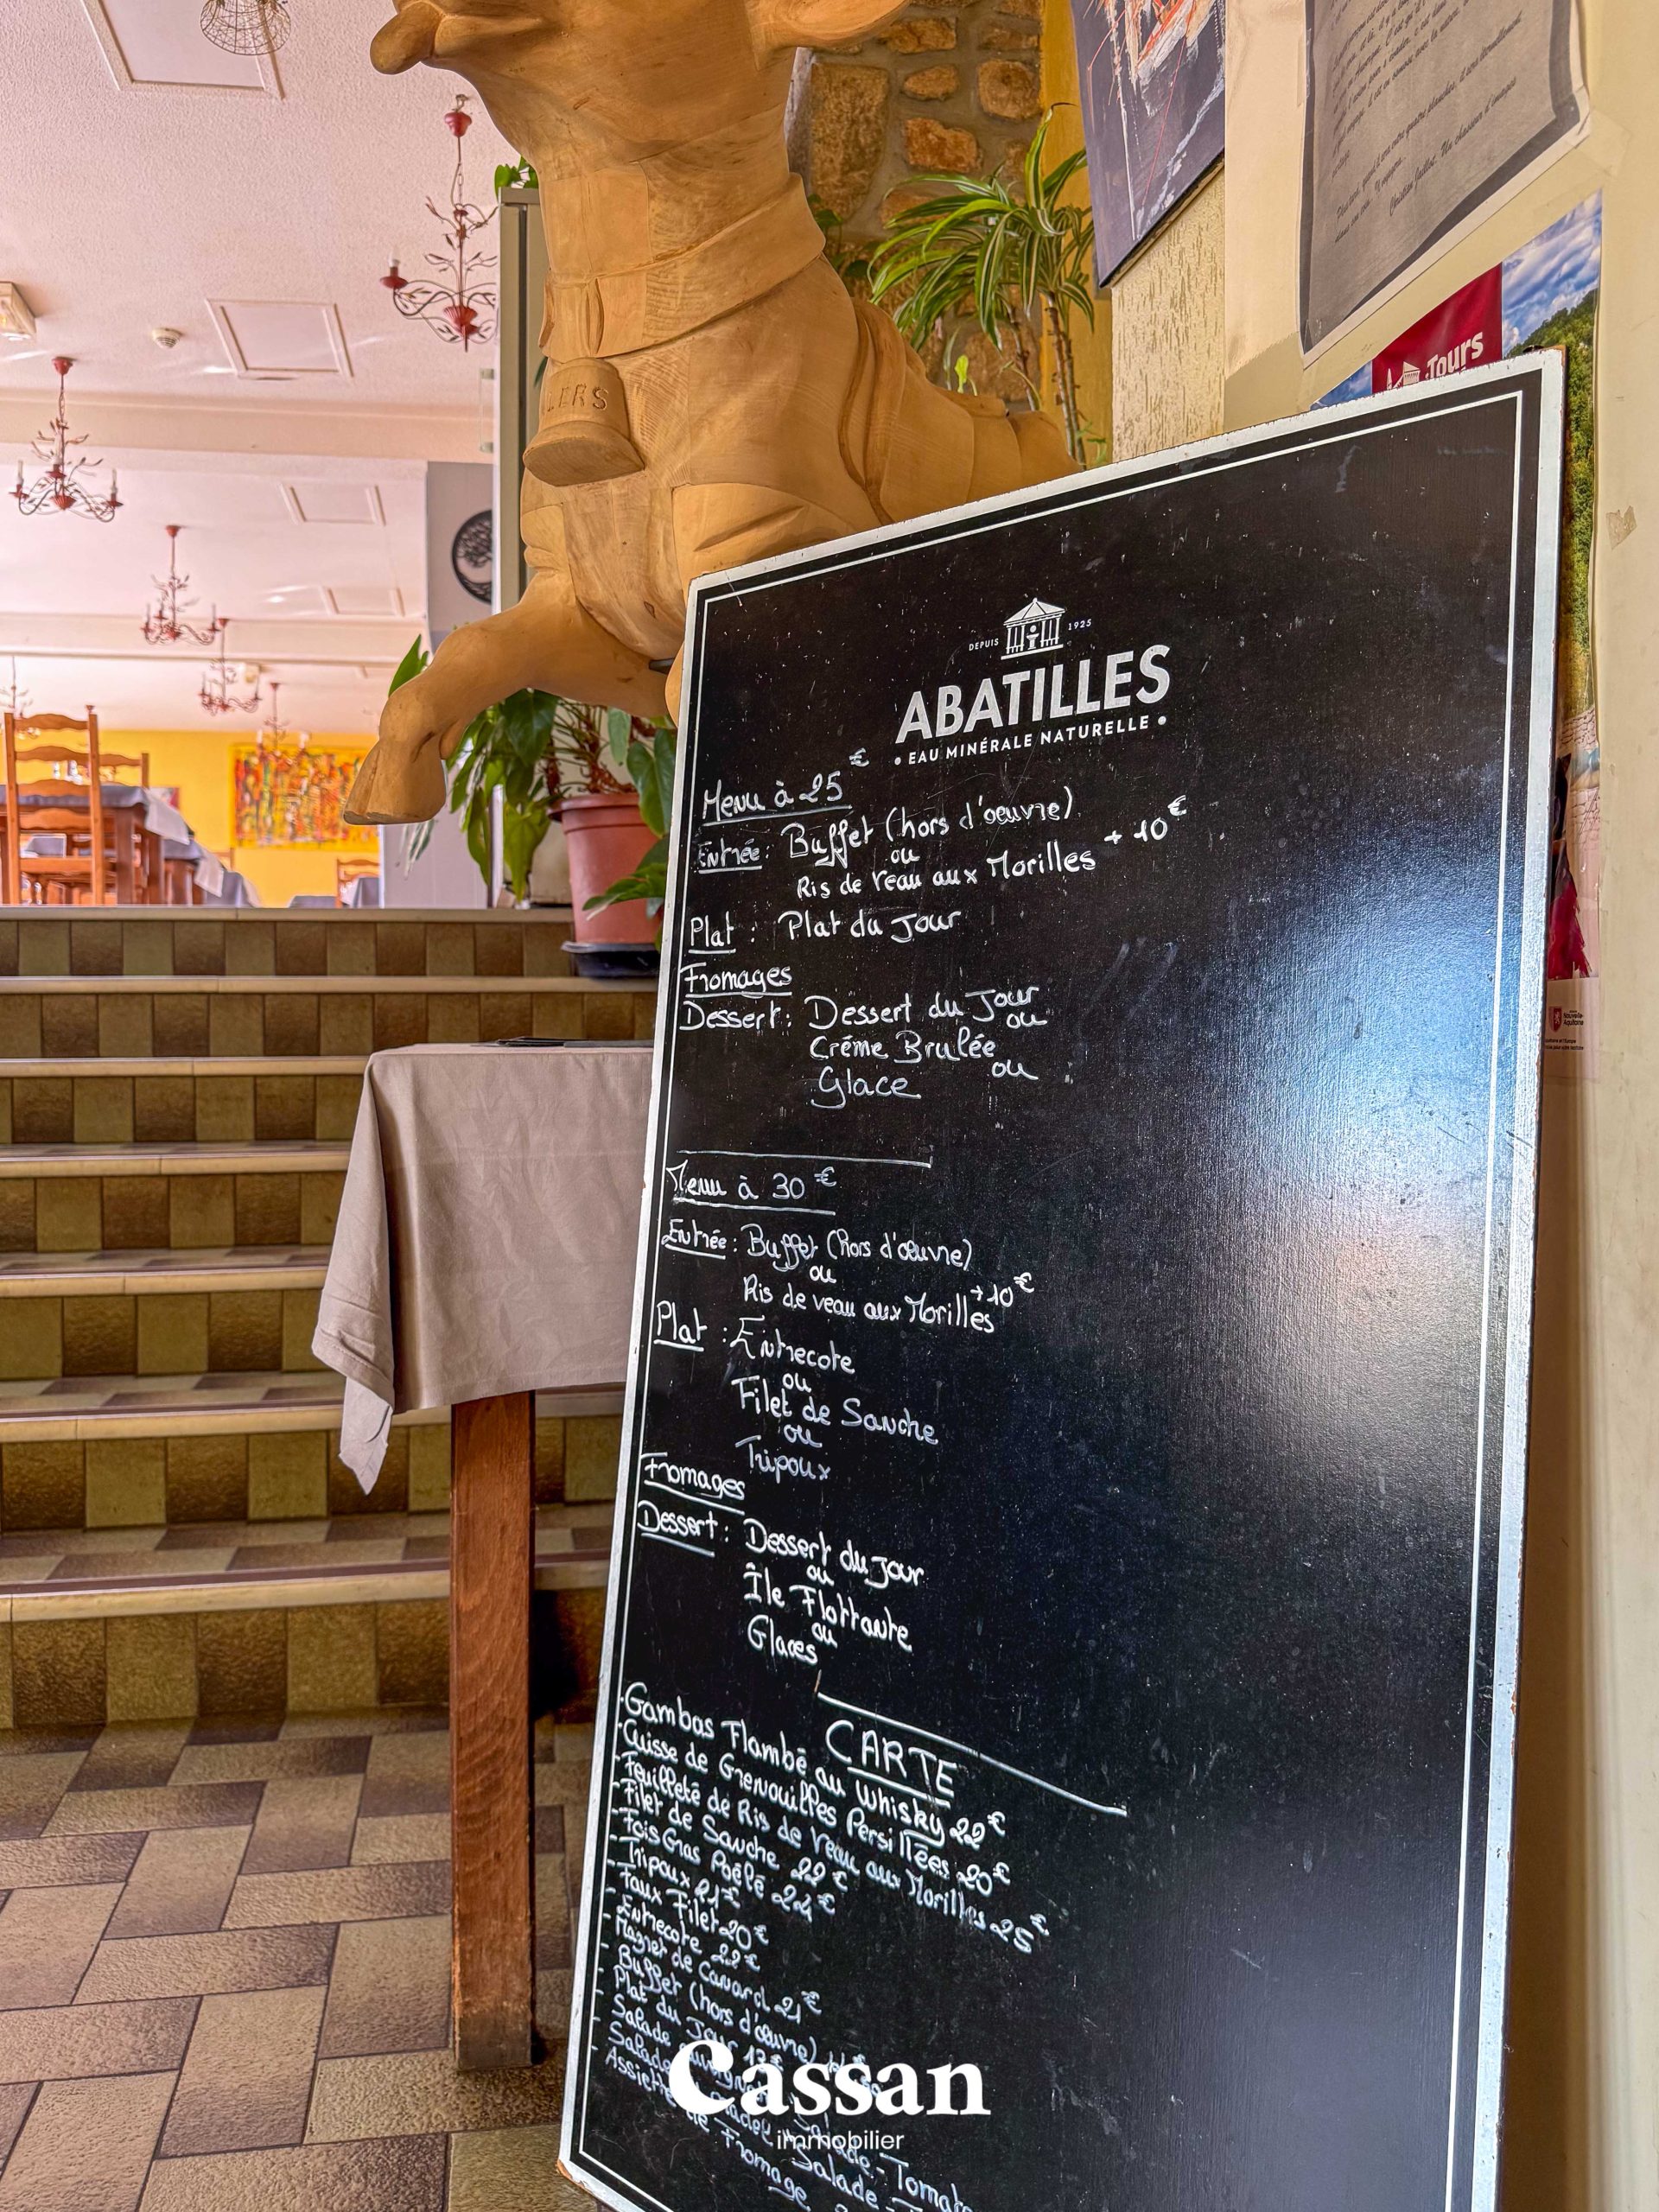 LERS
Christian Jaillet. Un chasseur d'images
Tours
DEPUIS
1925
ABATILLES
• EAU MINÉRALE NATURELLE •
Menu à 25 €
Entrée: Buffet (hors d'oeuvre)
ou
Ris de veau aux Morilles + 10 €
Plat : Plat du Jour
Fromages
Dessert: Dessert du Jour
ou
Créme Brulée
ou
Glace
Menu à 30 €
Entrée : Buffet (hors d'œuvre)
ou
Ris de veau aux Morilles +10 €
Plat : Entrecote
ou
Filet de Sandre
ou
Tripoux
Fromages
Dessert : Dessert du Jour
ou
Île Flottante
ou
Glaces
CARTE
Gambas Flambé au Whisky 22 €
Cuisse de Grenouilles Persillées 20 €
Feuilleté de Ris de veau aux Morilles 25 €
- Filet de Sandre 22 €
- Fois Gras Poêlé 24 €
- Tripoux 21 €
- Faux Filet 20 €
- Entrecote 22 €
- Magret de Canard 21 €
- Buffet (hors d'œuvre)
- Plat du Jour
- Salade
- Salade
- Assiette de Fromage
Salade - Tomate
Salade
Nouvelle-
Aquitaine
Cassan
immobilier